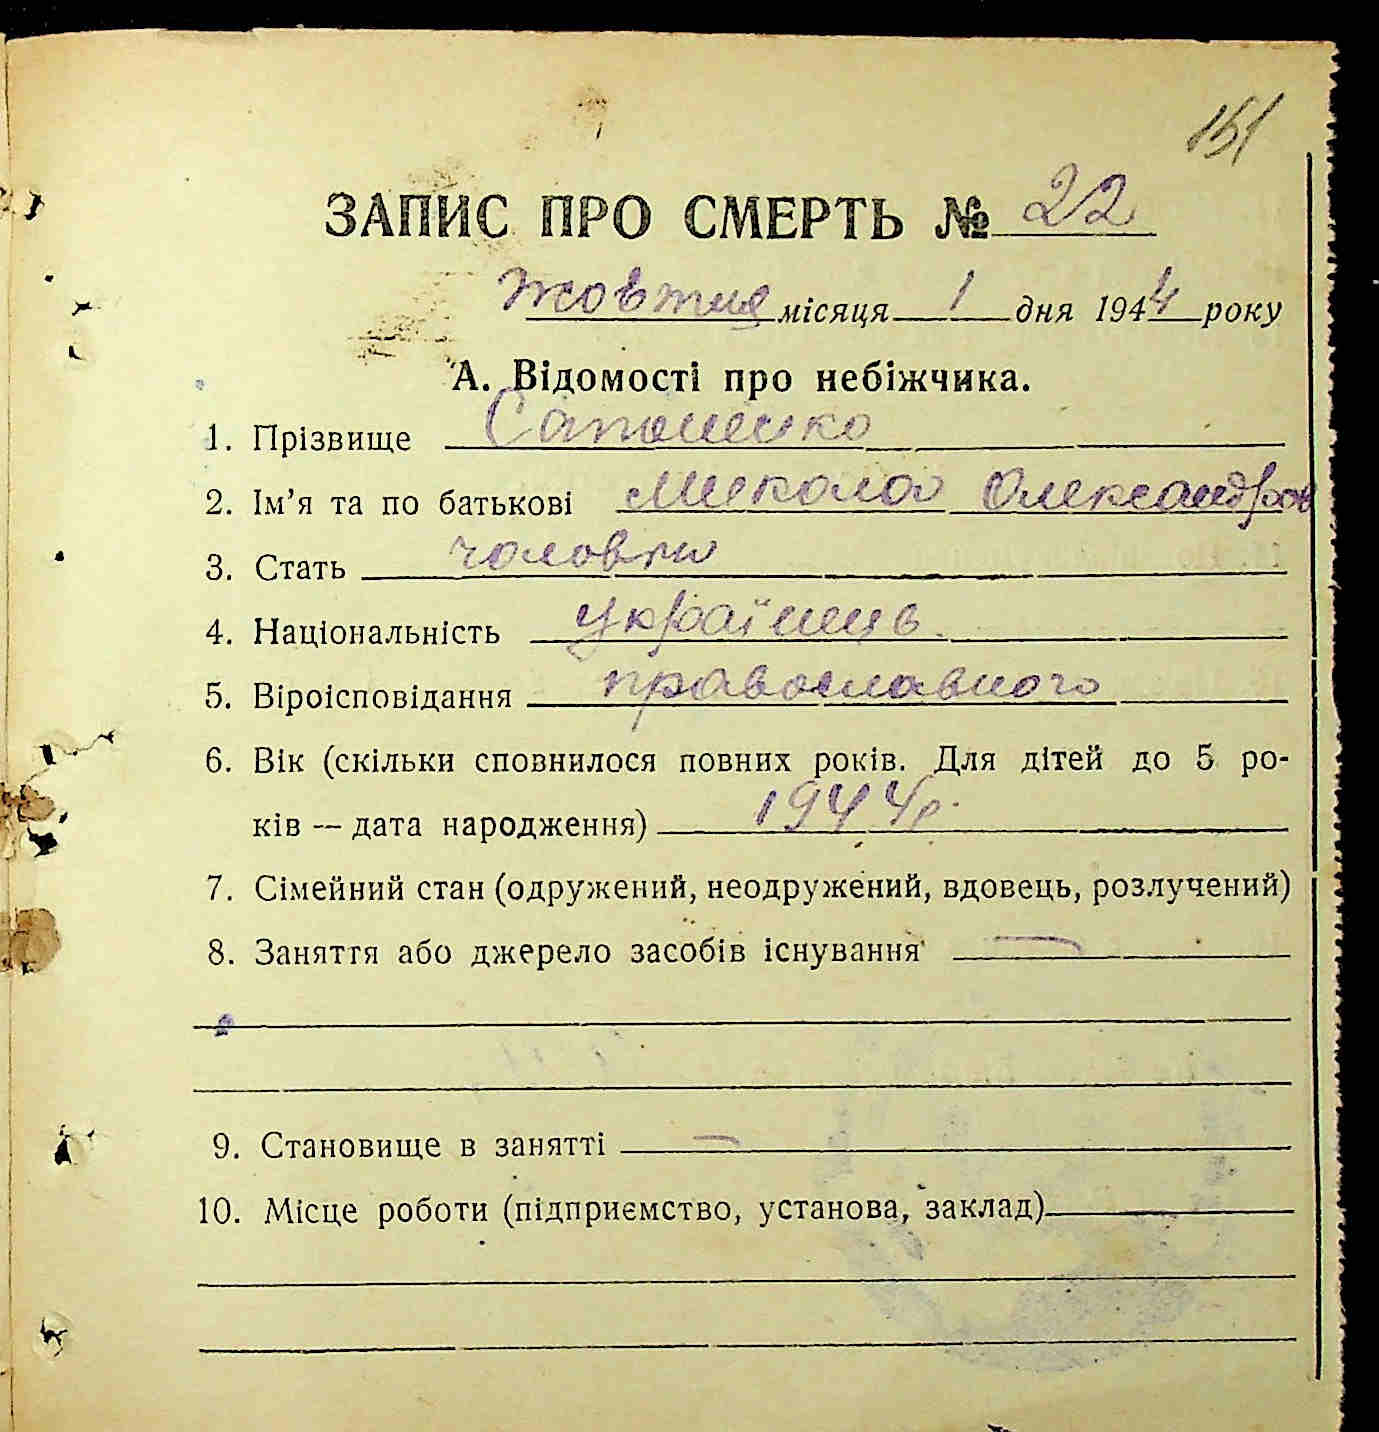 151
ЗАПИС ПРО СМЕРТЬ № 22
Жовтня місяця 1 дня 1944 року
А. Відомості про небіжчика.
1. Прізвище
2. Ім'я та по батькові Микола Олександров
3. Стать
4. Національність українць
5. Віроісповідання православного
6. Вік (скільки сповнилося повних років. Для дітей до 5 ро-
ків — дата народження) 1944р.
7. Сімейний стан (одружений, неодружений, вдовець, розлучений)
8. Заняття або джерело засобів існування —
9. Становище в занятті —
10. Місце роботи (підприємство, установа, заклад)